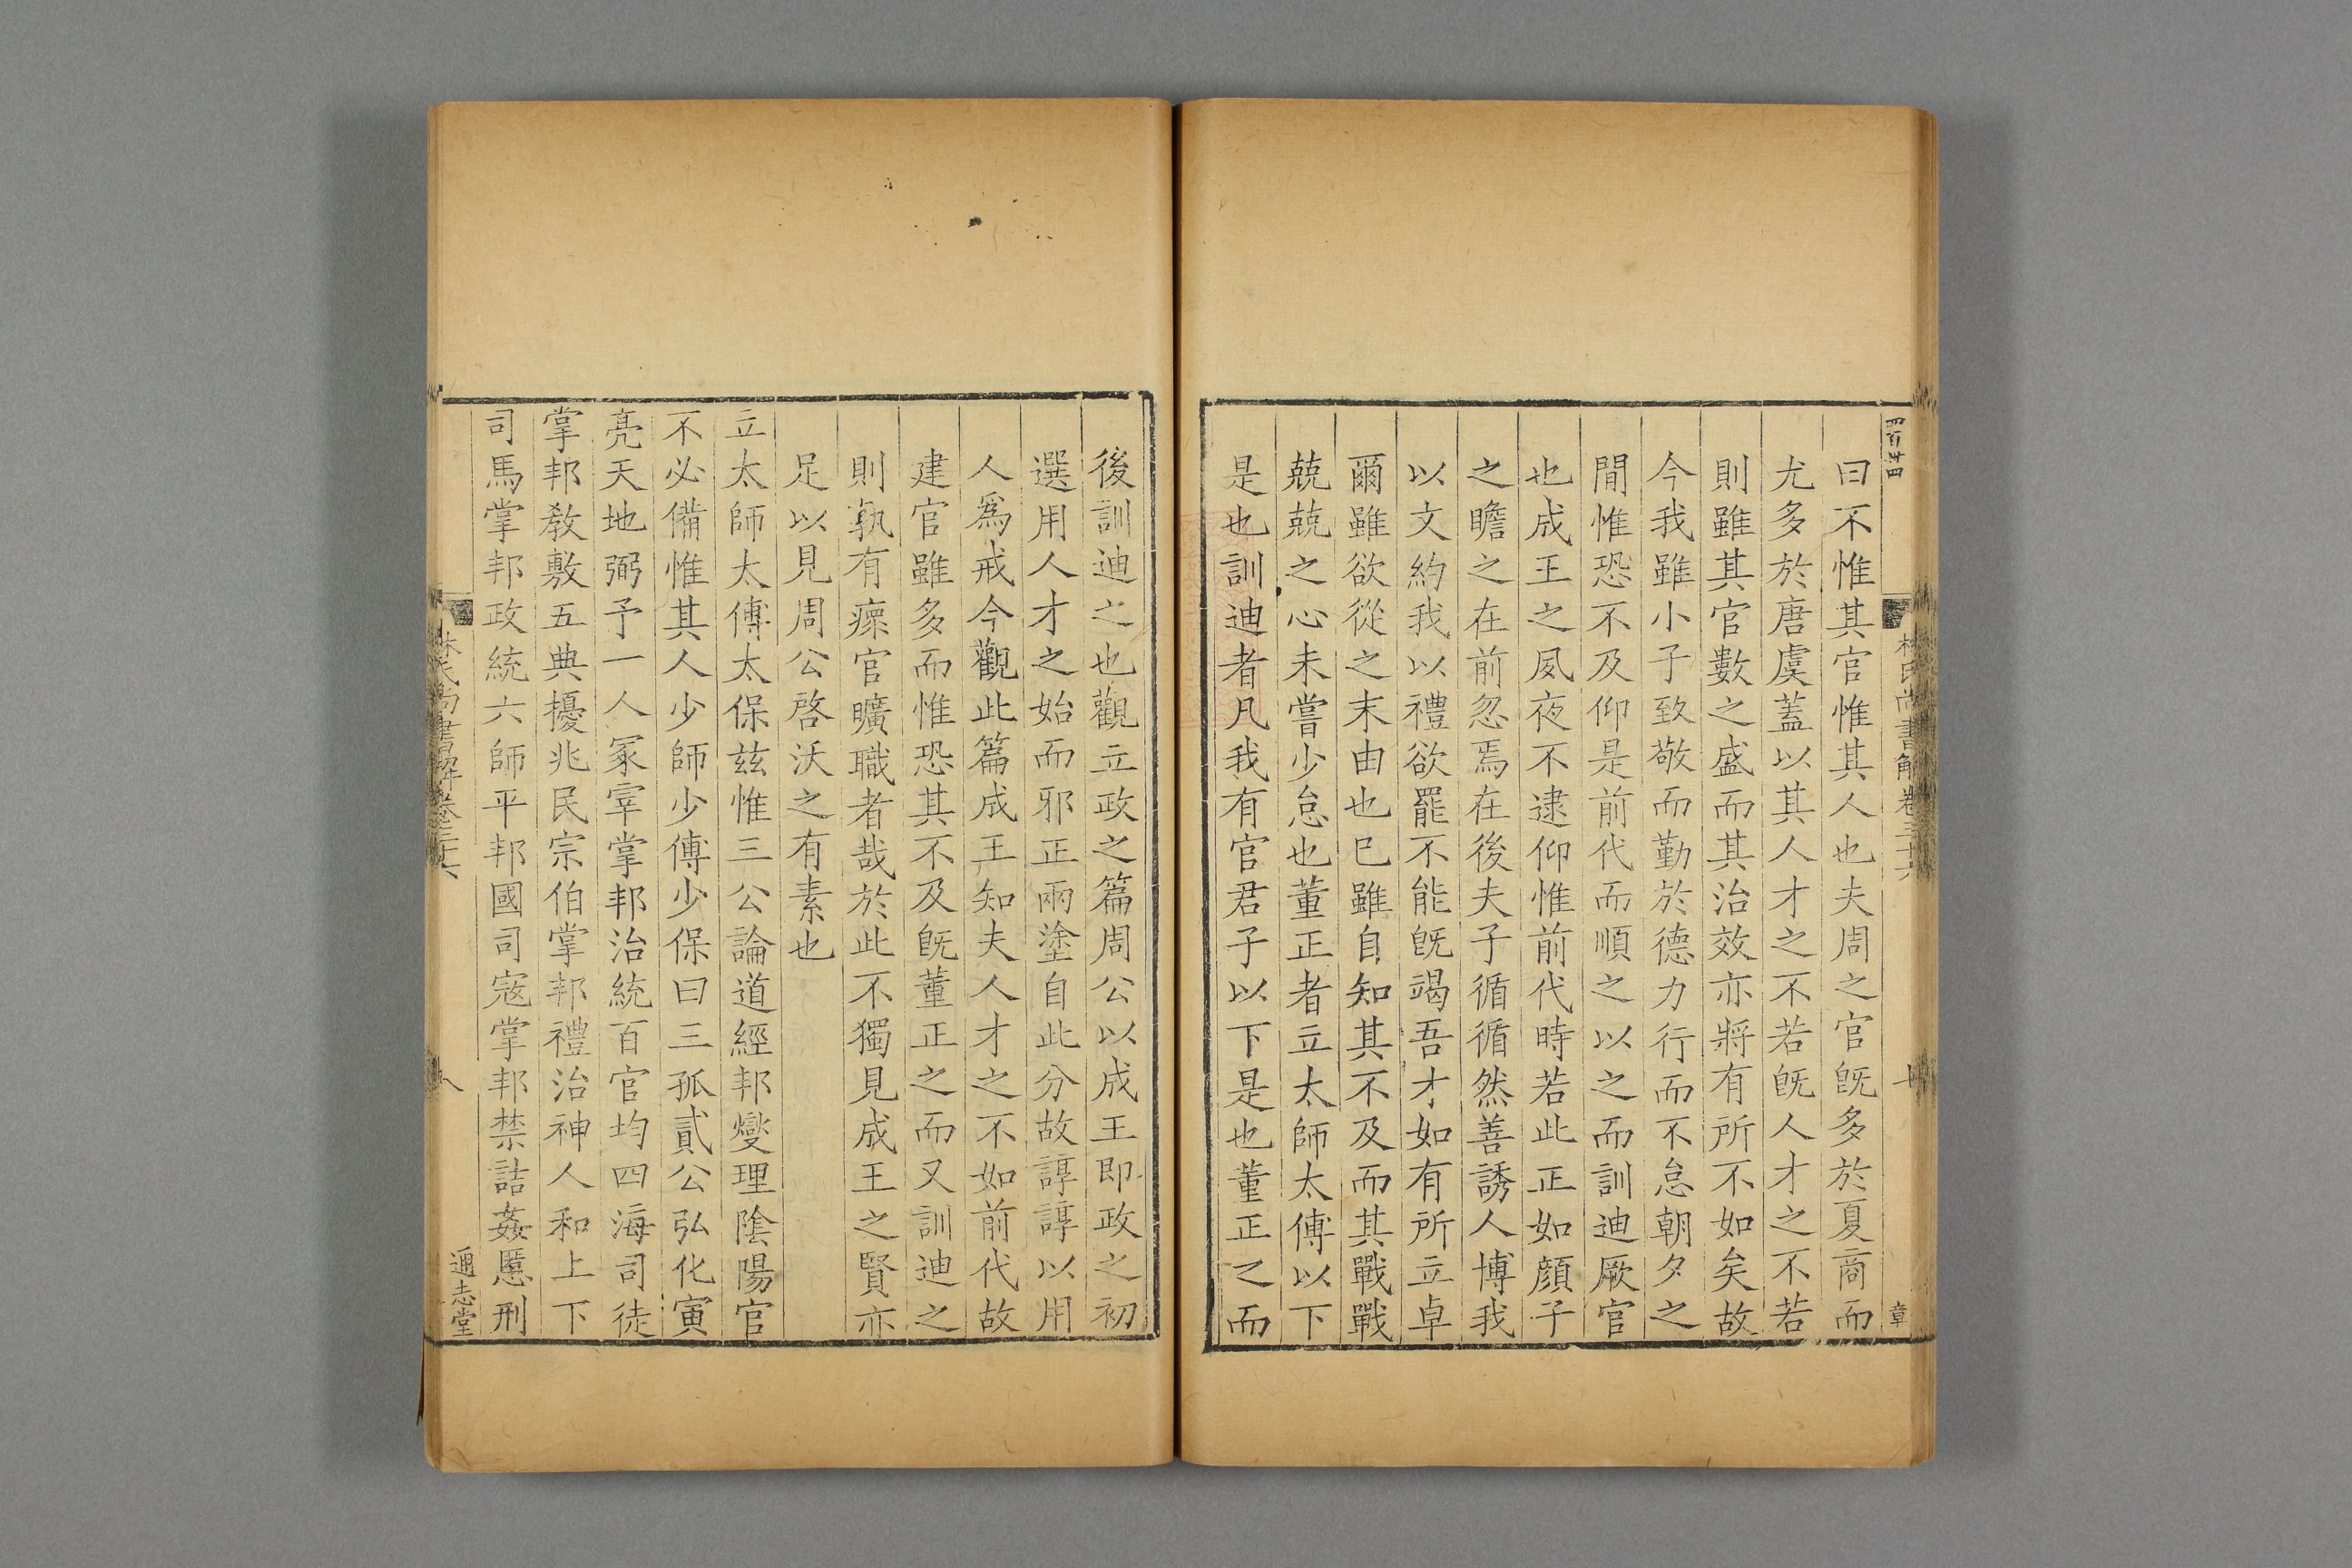 四百廿四
林氏尚書解卷三十六
章
曰不惟其官惟其人也夫周之官旣多於夏商而
尤多於唐虞蓋以其人才之不若旣人才之不若
則雖其官數之盛而其治效亦將有所不如矣故
今我雖小子致敬而勤於德力行而不怠朝夕之
間惟恐不及仰是前代而順之以之而訓迪厥官
也成王之夙夜不逮仰惟前代時若此正如顔子
之瞻之在前忽焉在後夫子循循然善誘人博我
以文約我以禮欲罷不能旣竭吾才如有所立卓
爾雖欲從之末由也已雖自知其不及而其戰戰
兢兢之心未嘗少怠也董正者立太師太傅以下
是也訓迪者凡我有官君子以下是也董正之而
後訓迪之也觀立政之篇周公以成王即政之初
選用人才之始而邪正兩塗自此分故諄諄以用
人爲戒今觀此篇成王知夫人才之不如前代故
建官雖多而惟恐其不及旣董正之而又訓迪之
則孰有瘝官曠職者哉於此不獨見成王之賢亦
足以見周公啓沃之有素也
立太師太傅太保兹惟三公論道經邦燮理陰陽官
不必備惟其人少師少傅少保曰三孤貳公弘化寅
亮天地弼予一人冢宰掌邦治統百官均四海司徒
掌邦敎敷五典擾兆民宗伯掌邦禮治神人和上下
司馬掌邦政統六師平邦國司寇掌邦禁詰姦慝刑
林氏尚書解卷三十六
八
通志堂